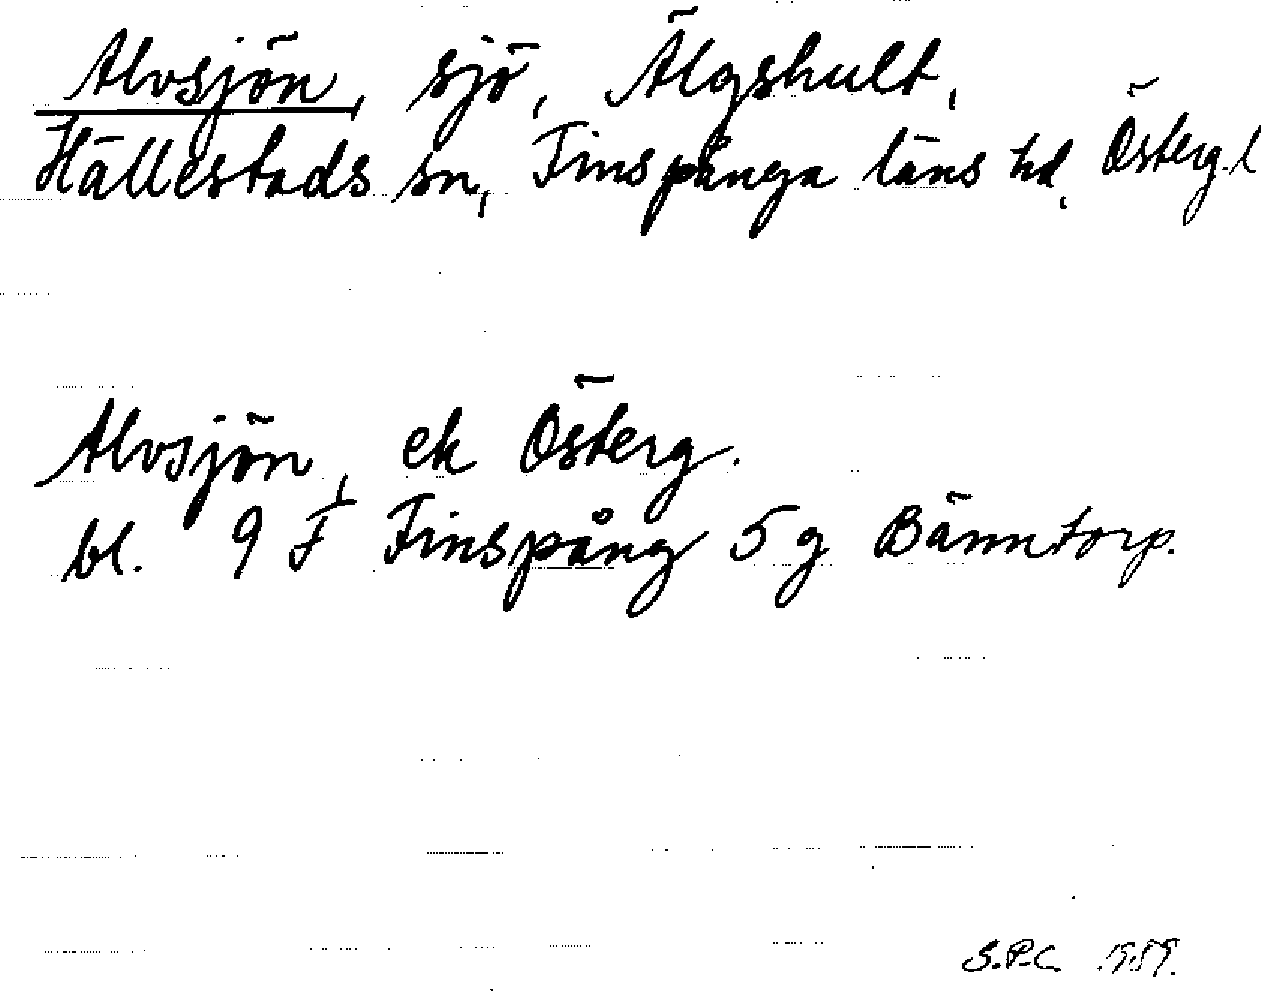 Alvsjön, sjö, Älgshult,
Hällestads sn, Finspånga läns hd, Östergl
Alvsjön, ek Österg.
bl. 9 F Finspång 5 g Bänntorp.
S.P.C. 1959.